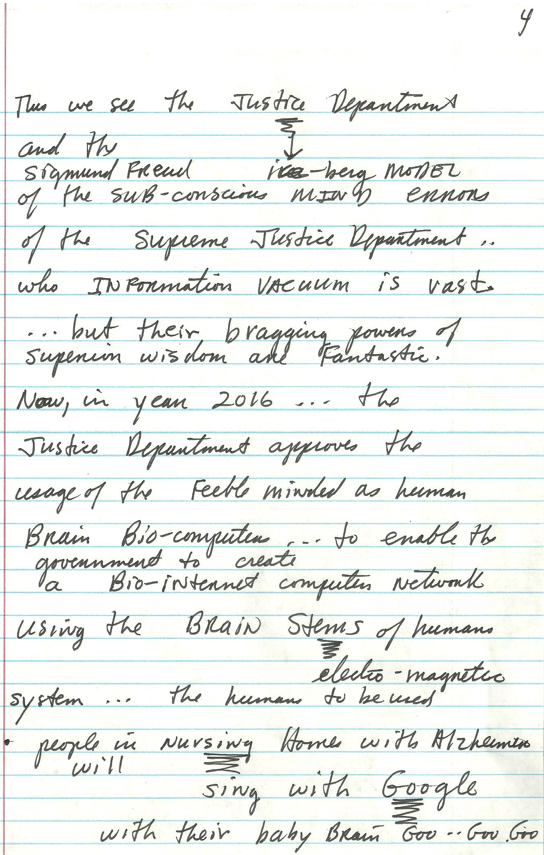 4
Thus we see the Justice Department
and the
Sigmund Freud ice-berg MODEL
of the SUB-conscious MIND ERRORS
of the Supreme Justice Department ..
who INFORMATION VACUUM is vast
... but their bragging powers of
superior wisdom are Fantastic.
Now, in year 2016 ... the
Justice Department approves the
usage of the Feeble minded as human
Brain Bio-computer ... to enable the
government to create
a Bio-internet computer network
using the BRAIN Stems of humans
electro-magnetic
system ... the humans to be used
• people in Nursing Homes with Alzheimers
will
sing with Google
with their baby Brain Goo .. Goo. Goo